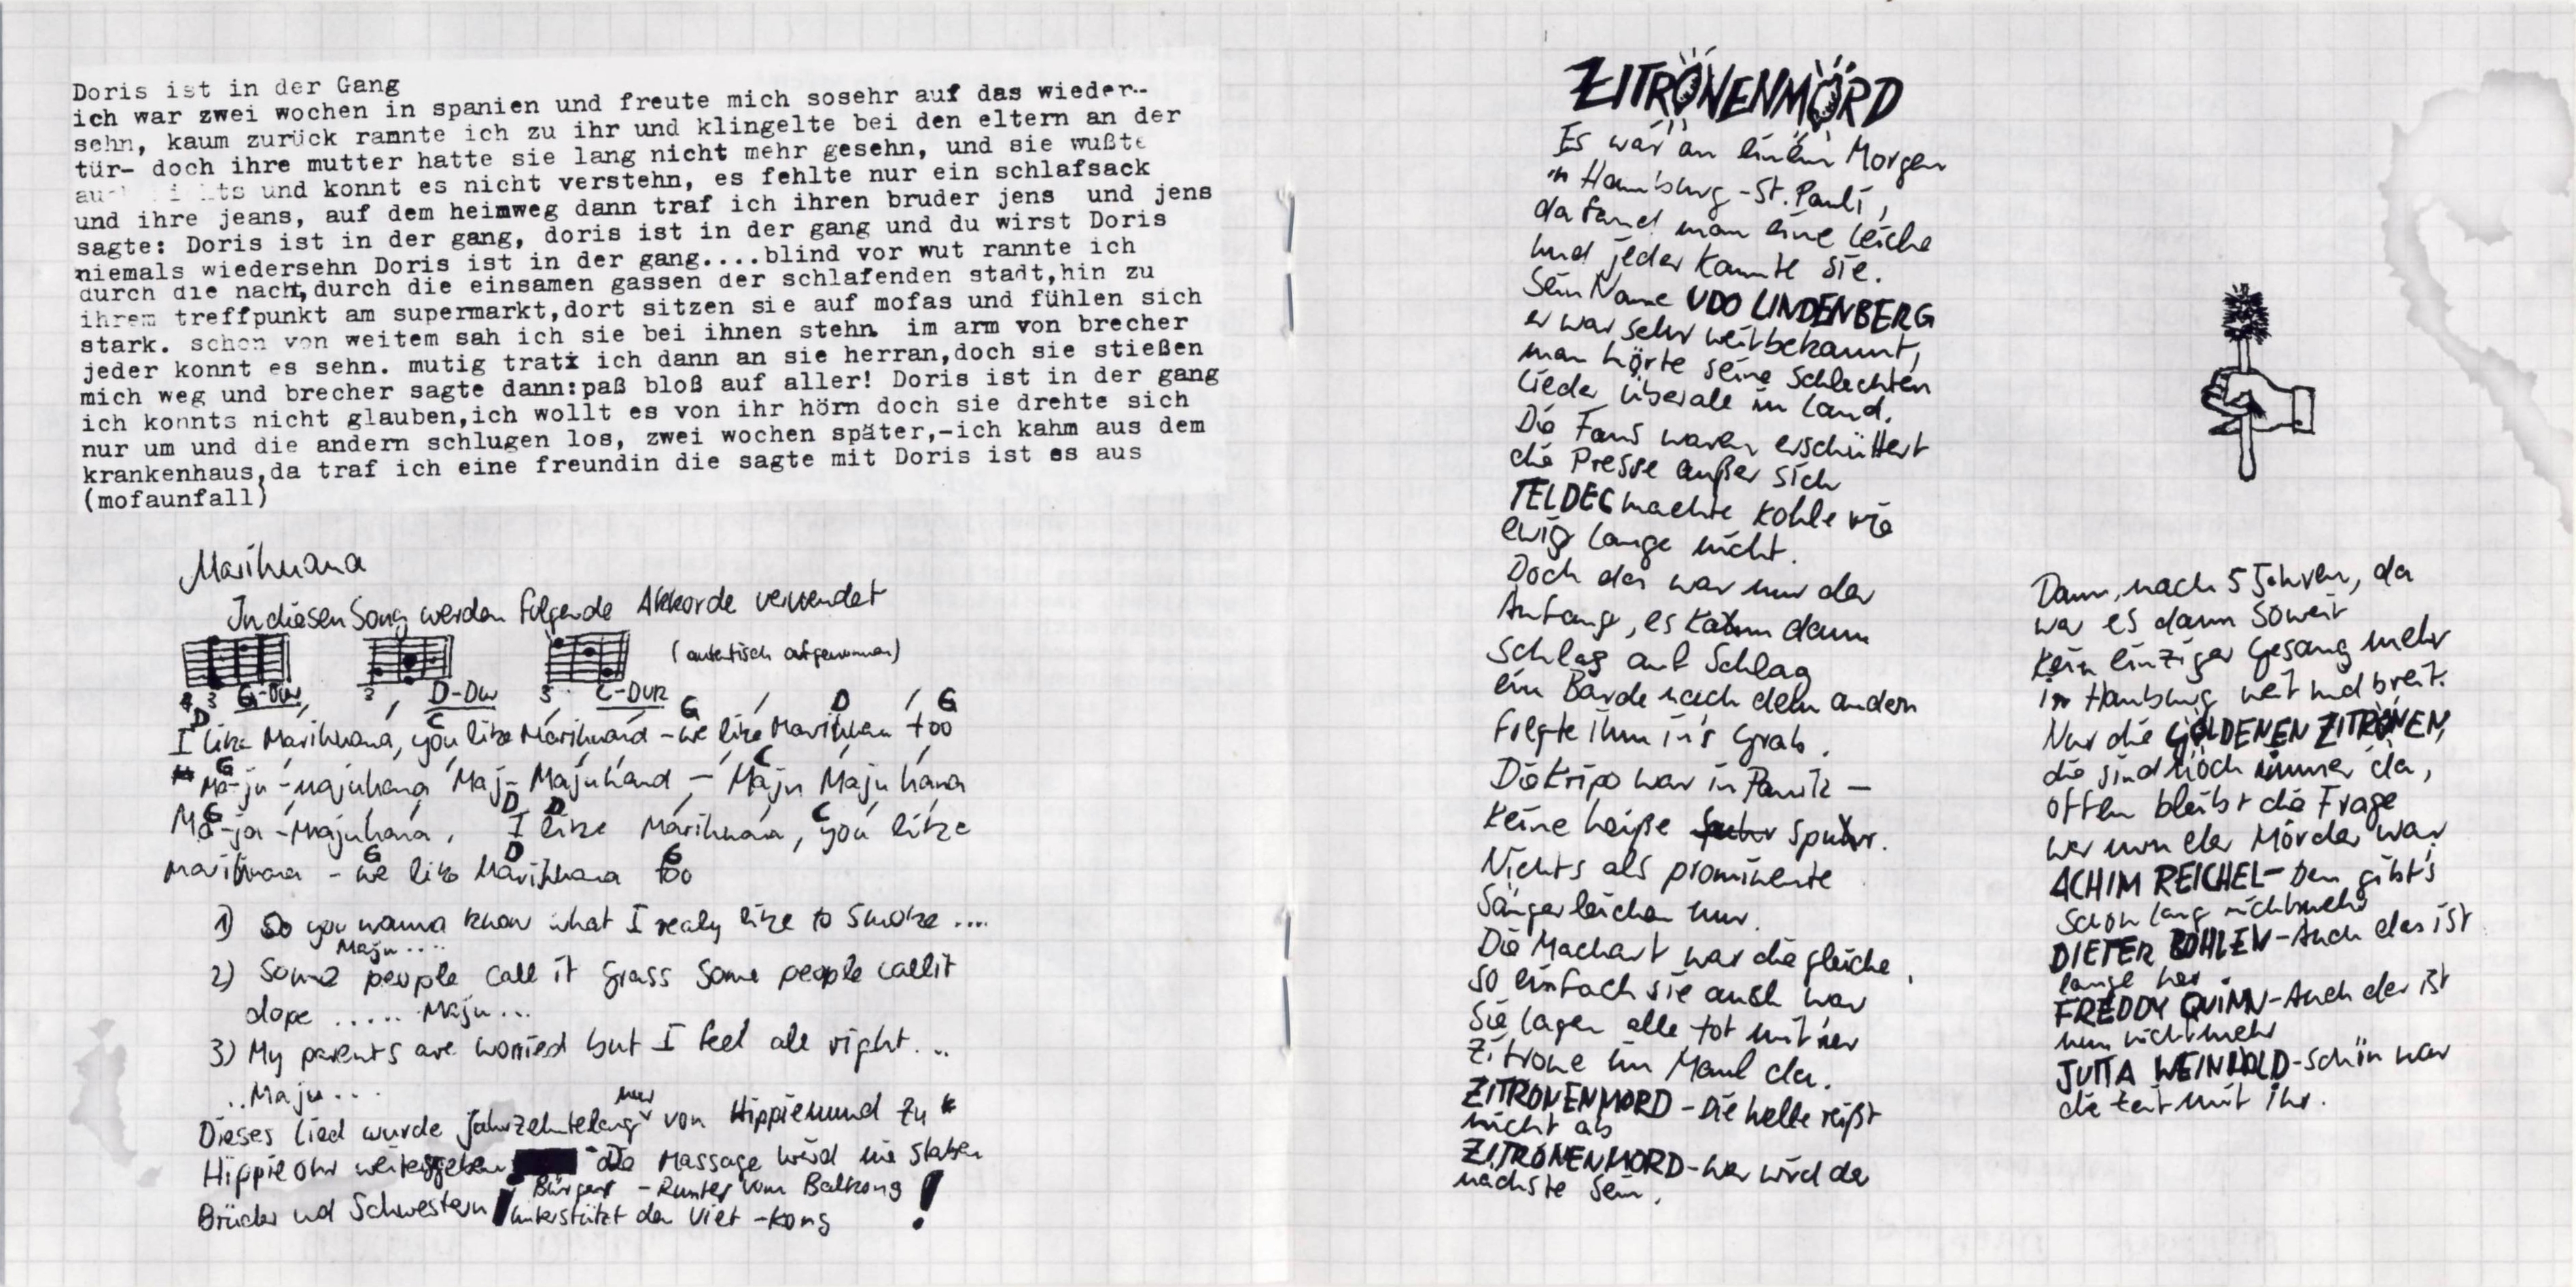 Doris ist in der Gang
ich war zwei wochen in spanien und freute mich sosehr auf das wieder--
sehn, kaum zurück rannte ich zu ihr und klingelte bei den eltern an der
tür- doch ihre mutter hatte sie lang nicht mehr gesehn, und sie wußte
und konnt es nicht verstehn, es fehlte nur ein schlafsack
und ihre jeans, auf dem heimweg dann traf ich ihren bruder jens und jens
sagte: Doris ist in der gang, doris ist in der gang und du wirst Doris
niemals wiedersehn Doris ist in der gang....blind vor wut rannte ich
durch die nacht,durch die einsamen gassen der schlafenden stadt,hin zu
ihrem treffpunkt am supermarkt,dort sitzen sie auf mofas und fühlen sich
stark. schon von weitem sah ich sie bei ihnen stehn im arm von brecher
jeder konnt es sehn. mutig trat ich dann an sie herran,doch sie stießen
mich weg und brecher sagte dann:paß bloß auf aller! Doris ist in der gang
ich konnts nicht glauben,ich wollt es von ihr hörn doch sie drehte sich
nur um und die andern schlugen los, zwei wochen später,-ich kahm aus dem
krankenhaus,da traf ich eine freundin die sagte mit Doris ist es aus
(mofaunfall)
Marihuana
In diesen Song werden folgende Akkorde verwendet
(autentisch aufgenommen)
3 G-Dur 2 D-Dur 3 C-DUR
D C G D G
I like Marihuana, you like Marihuana - we like Marihuan too
G C
Ma-ju-majuhana Maj- Majuhana - Maju Majuhana
G D D C
Ma-ju-Majuhana, I like Marihuana, you like
G D G
marihuana - we like Marihuana too
1) So you wanna know what I realy like to smoke ....
Maju....
2) Some people call it grass some people callit
dope ..... Maju...
3) My parents are worried but I feel all right...
..Maju...
Dieses Lied wurde Jahrzehntelang nur von Hippiemund zu
Hippieohr weitergegeben - Die Massage wird nie staben
Brüder und Schwestern! Bürger - Runter vom Balkong
Unterstützt den Viet-Kong !
ZITRONENMORD
Es war an einem Morgen
in Hamburg-St. Pauli,
da fand man eine Leiche
und jeder kannte sie.
Sein Name UDO LINDENBERG
er war sehr weitbekannt,
man hörte seine schlechten
Lieder überall im Land.
Die Fans waren erschüttert
die Presse außer sich
TELDEC machte Kohle wie
ewig lange nicht.
Doch das war nur der
Anfang, es kam dann
Schlag auf Schlag
ein Barde nach dem andern
folgte ihm in's Grab.
Die Kripo war in Panik -
Keine heiße Spur.
Nichts als prominente
Sängerleichen nur.
Die Machart war die gleiche
so einfach sie auch war
Sie lagen alle tot mit 'ner
Zitrone im Maul da.
ZITRONENMORD - Die Kette reißt
nicht ab
ZITRONENMORD - Wer wird der
nächste sein.
Dann, nach 5 Jahren, da
war es dann soweit
Kein einziger Gesang mehr
in Hamburg weit und breit.
Nur die GOLDENEN ZITRONEN,
die sind noch immer da,
offen bleibt die Frage
wer nun der Mörder war
ACHIM REICHEL - Den gibt's
schon lang nichtmehr
DIETER BOHLEN - Auch das ist
lange her
FREDDY QUINN - Auch der ist
nun nichtmehr
JUTTA WEINHOLD - schön war
die Zeit mit ihr.